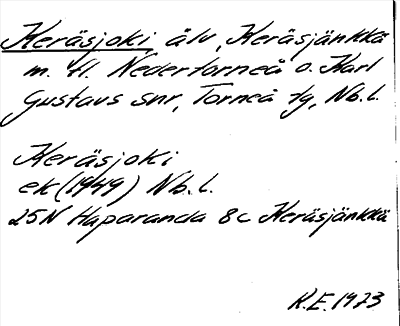 Keräsjoki, älv, Keräsjänkkä
m. fl. Nedertorneå o. Karl
Gustavs snr, Torneå tg, Nb.l.
Keräsjoki
ek (1949) Nb.l.
25N Haparanda 8c Keräsjänkkä
R.E. 1973